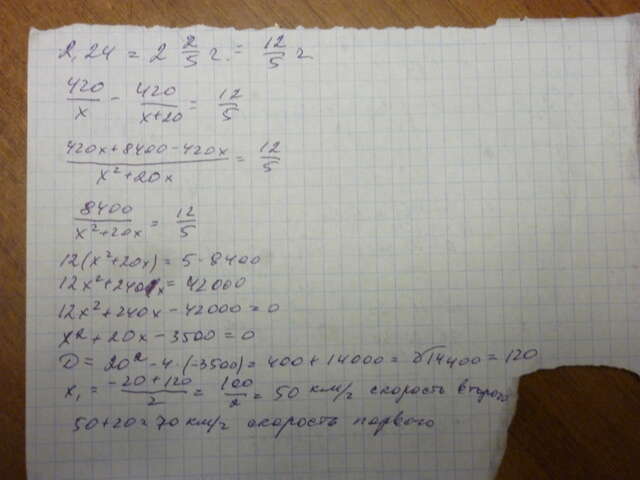 2,24 = 2 2/5 г. = 12/5 г
420/x - 420/x+20 = 12/5
420x+8400-420x/x²+20x = 12/5
8400/x²+20x = 12/5
12(x²+20x) = 5·8400
12x²+240x = 42000
12x²+240x-42000=0
x²+20x-3500=0
D = 20²-4·(-3500)=400+14000=√14400=120
x₁ = -20+120/2 = 100/2 = 50 км/г скорость второго
50+20=70 км/г скорость первого